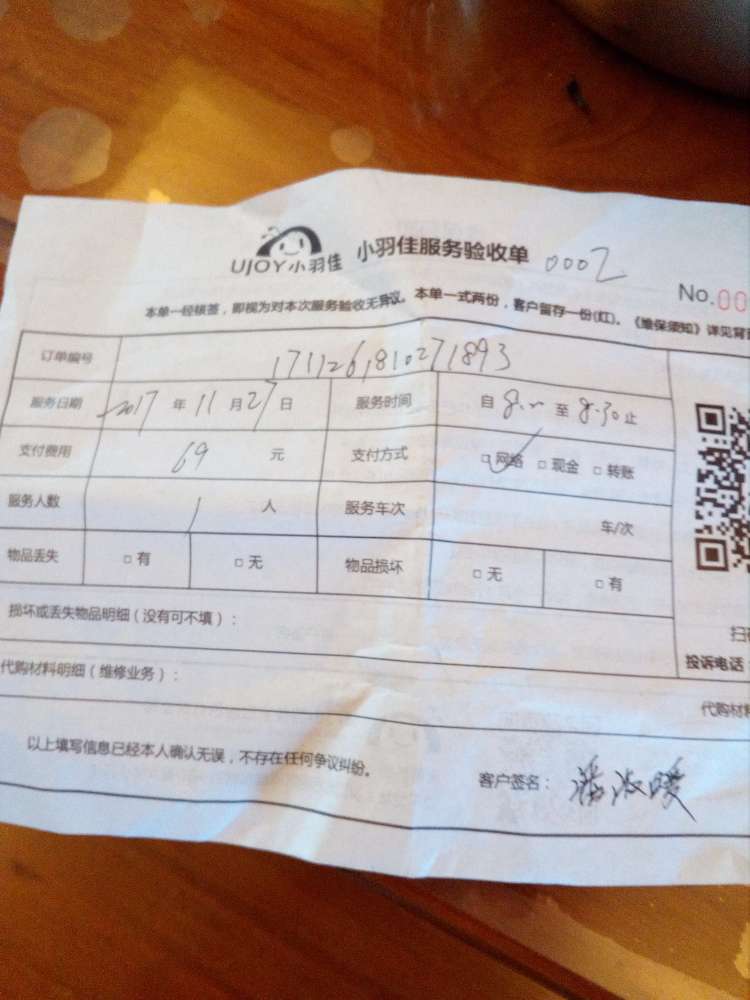 UJOY小羽佳 小羽佳服务验收单 0002
No.00
本单一经核签，即视为对本次服务验收无异议。本单一式两份，客户留存一份(红)。《维保须知》详见背
订单编号 1711261810271893
服务日期 2017 年 11 月 27 日 服务时间 自 8:00 至 8:30 止
支付费用 69 元 支付方式 □网络 □现金 □转账
服务人数 1 人 服务车次 车/次
物品丢失 □有 □无 物品损坏 □无 □有
损坏或丢失物品明细（没有可不填）：
扫
投诉电话
代购材料明细（维修业务）：
代购材
以上填写信息已经本人确认无误，不存在任何争议纠纷。
客户签名：潘淑暖